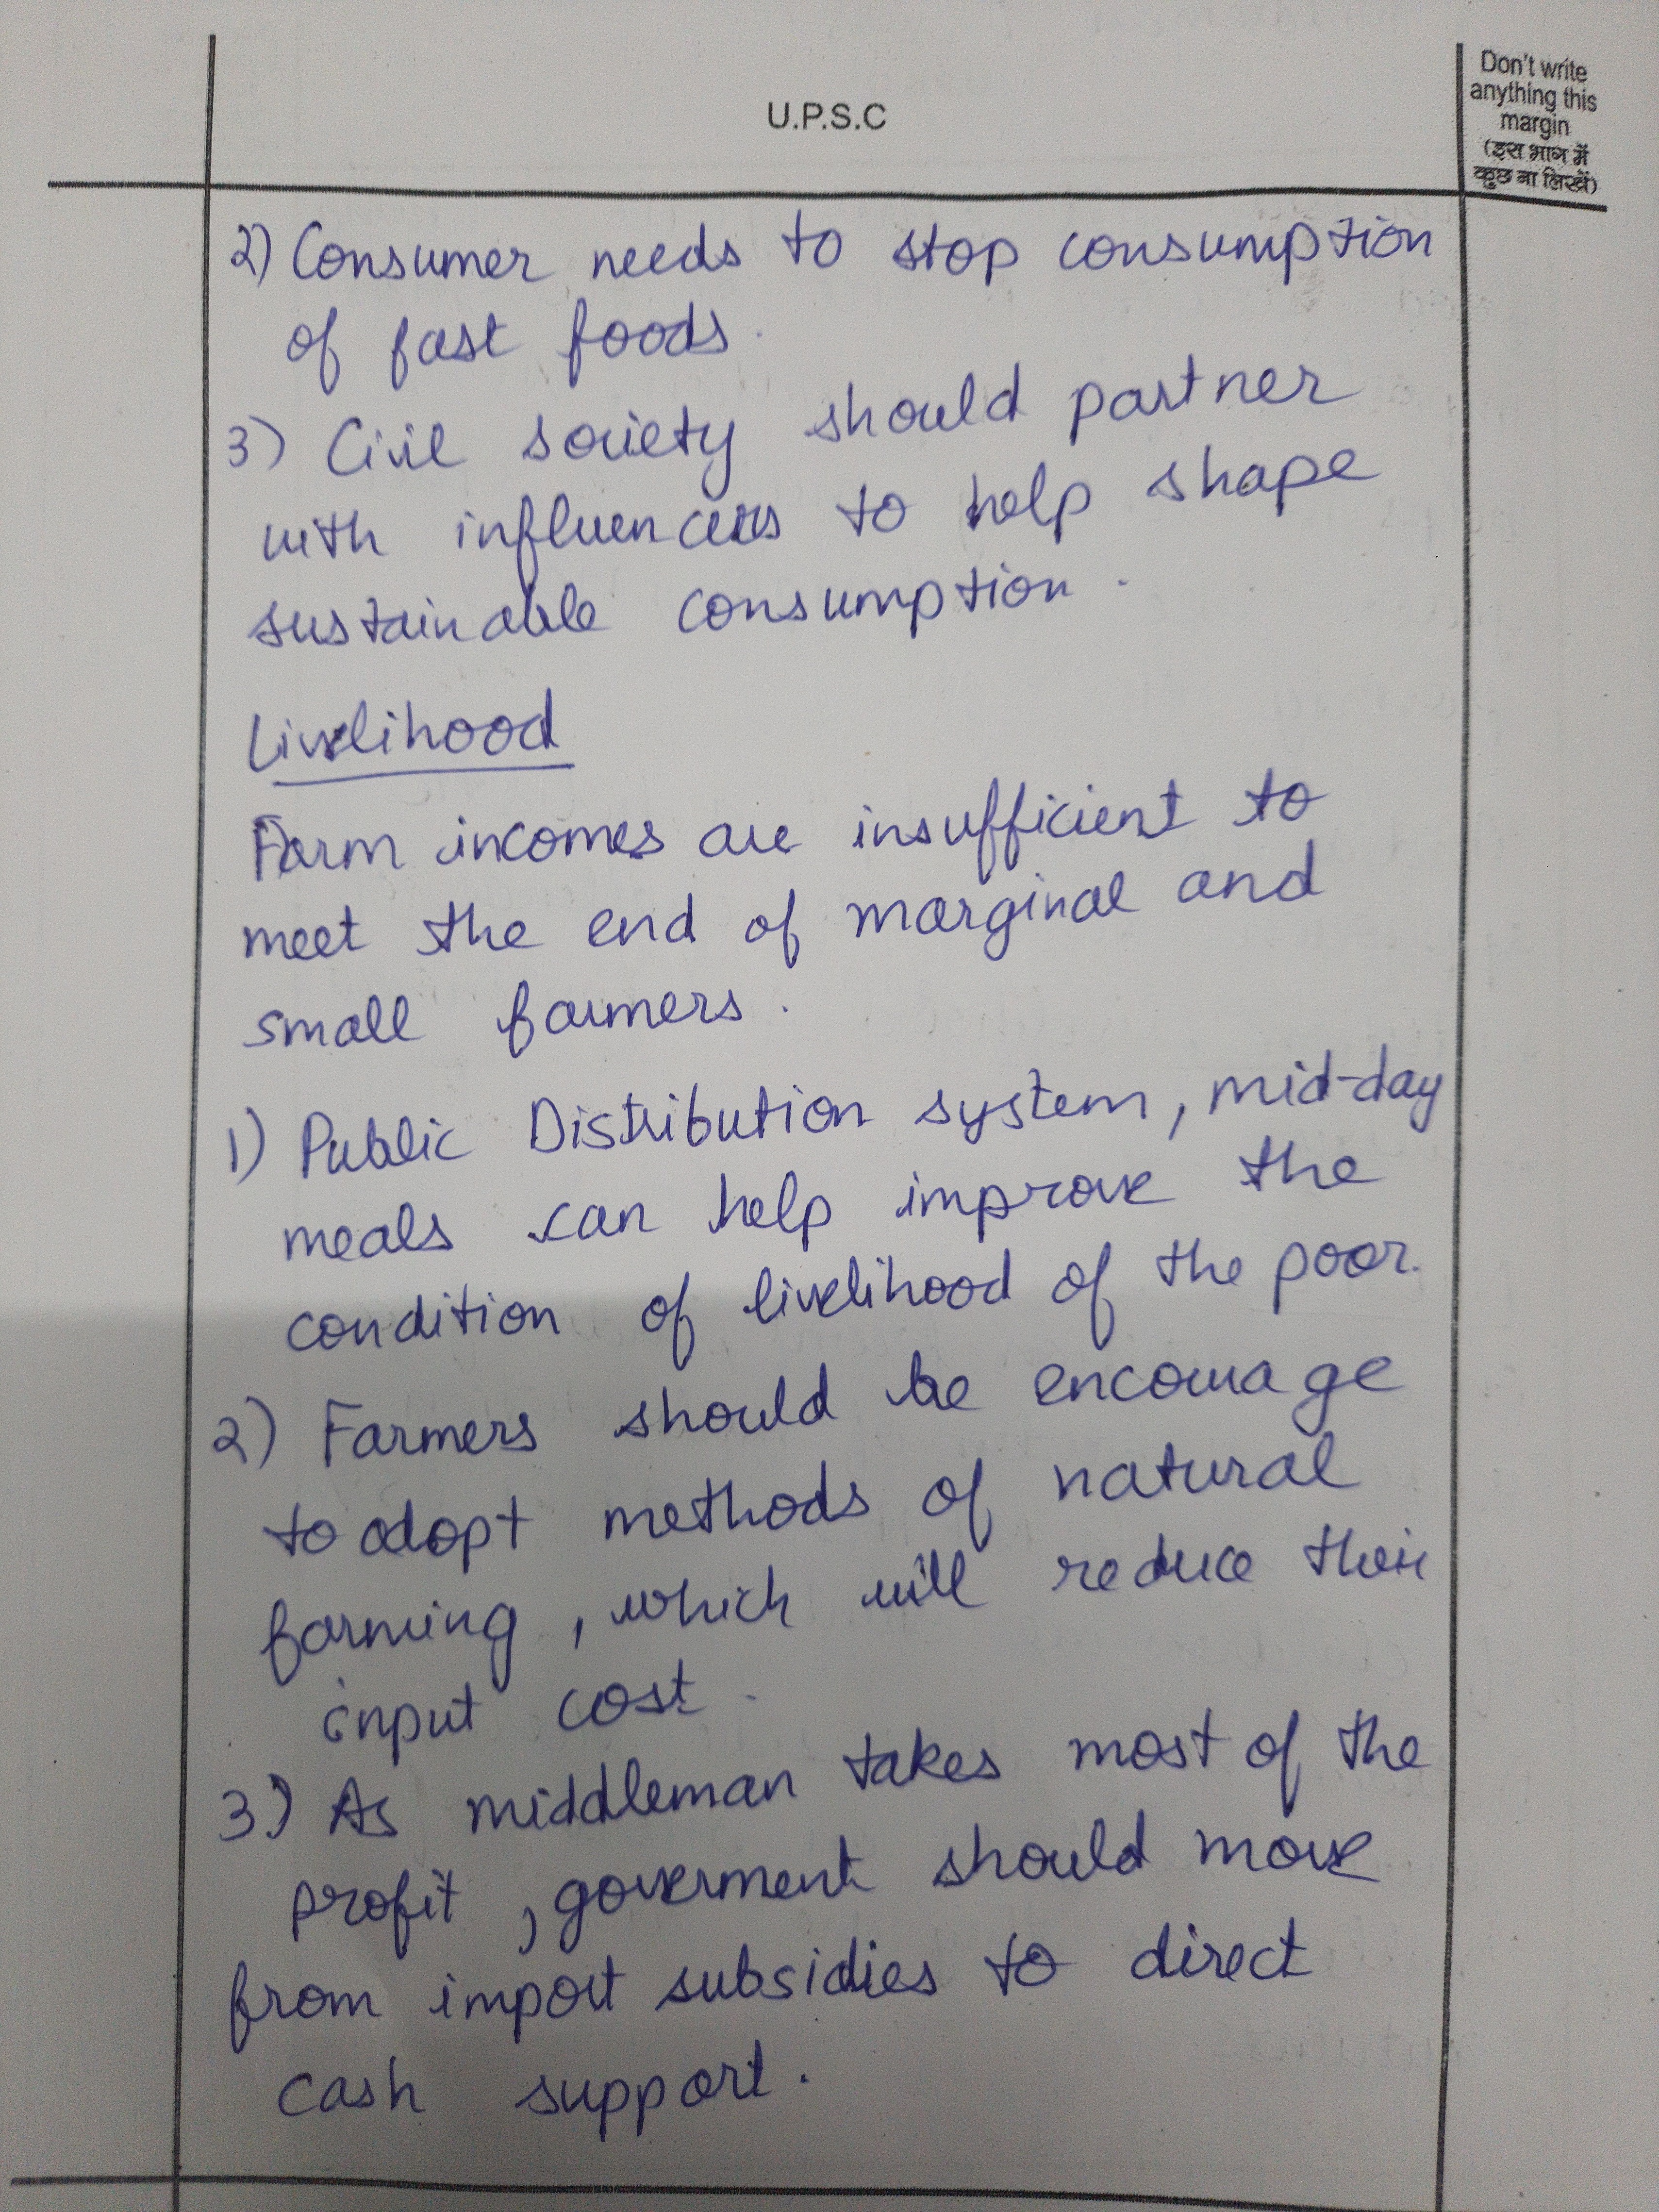 U.P.S.C
Don't write
anything this
margin
(इस भाग में
कुछ ना लिखें)
2) Consumer needs to stop consumption
of fast foods.
3) Civil society should partner
with influencers to help shape
sustainable consumption.
Livelihood
Farm incomes are insufficient to
meet the end of marginal and
small farmers.
1) Public Distribution system, mid-day
meals can help improve the
condition of livelihood of the poor.
2) Farmers should be encourage
to adopt methods of natural
farming, which will reduce their
input cost.
3) As middleman takes most of the
profit, goverment should move
from import subsidies to direct
cash support.